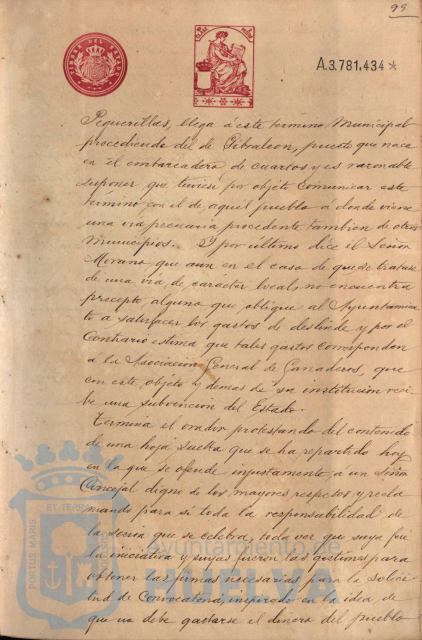 99
TIMBRE DEL ESTADO
A.3.781.434*
Peguerillas, llega á este término Municipal
procediendo del de Gibraleon, puesto que nace
en el embarcadero de cuartos y es razonable
suponer que tuviese por objeto comunicar este
término con el de aquel pueblo á donde viene
una via pecuaria procedente tambien de otros
Municipios. Y por último dice el Señor
Morano que aun en el caso de que se tratase
de una via de caracter local, no encuentra
precepto alguno que obligue al Ayuntamien
to á satisfacer los gastos de deslinde y por el
contrario estima que tales gastos corresponden
a la Asociacion General de Ganaderos, que
con este objeto y demas de su institucion reci
be una subvencion del Estado.
Termina el orador protestando del contenido
de una hoja suelta que se ha repartido hoy
en la que se ofende injustamente á un Señor
Concejal digno de los mayores respetos y recla
mando para sí toda la responsabilidad de
la sesion que se celebra, toda vez que suya fué
la iniciativa y suyas fueron las gestiones para
obtener las firmas necesarias para la solici
tud de Convocatoria, inspirado en la idea de
que no debe gastarse el dinero del pueblo
PORTUS MARIS ET TERRAE
Ayuntamiento de
HUELVA